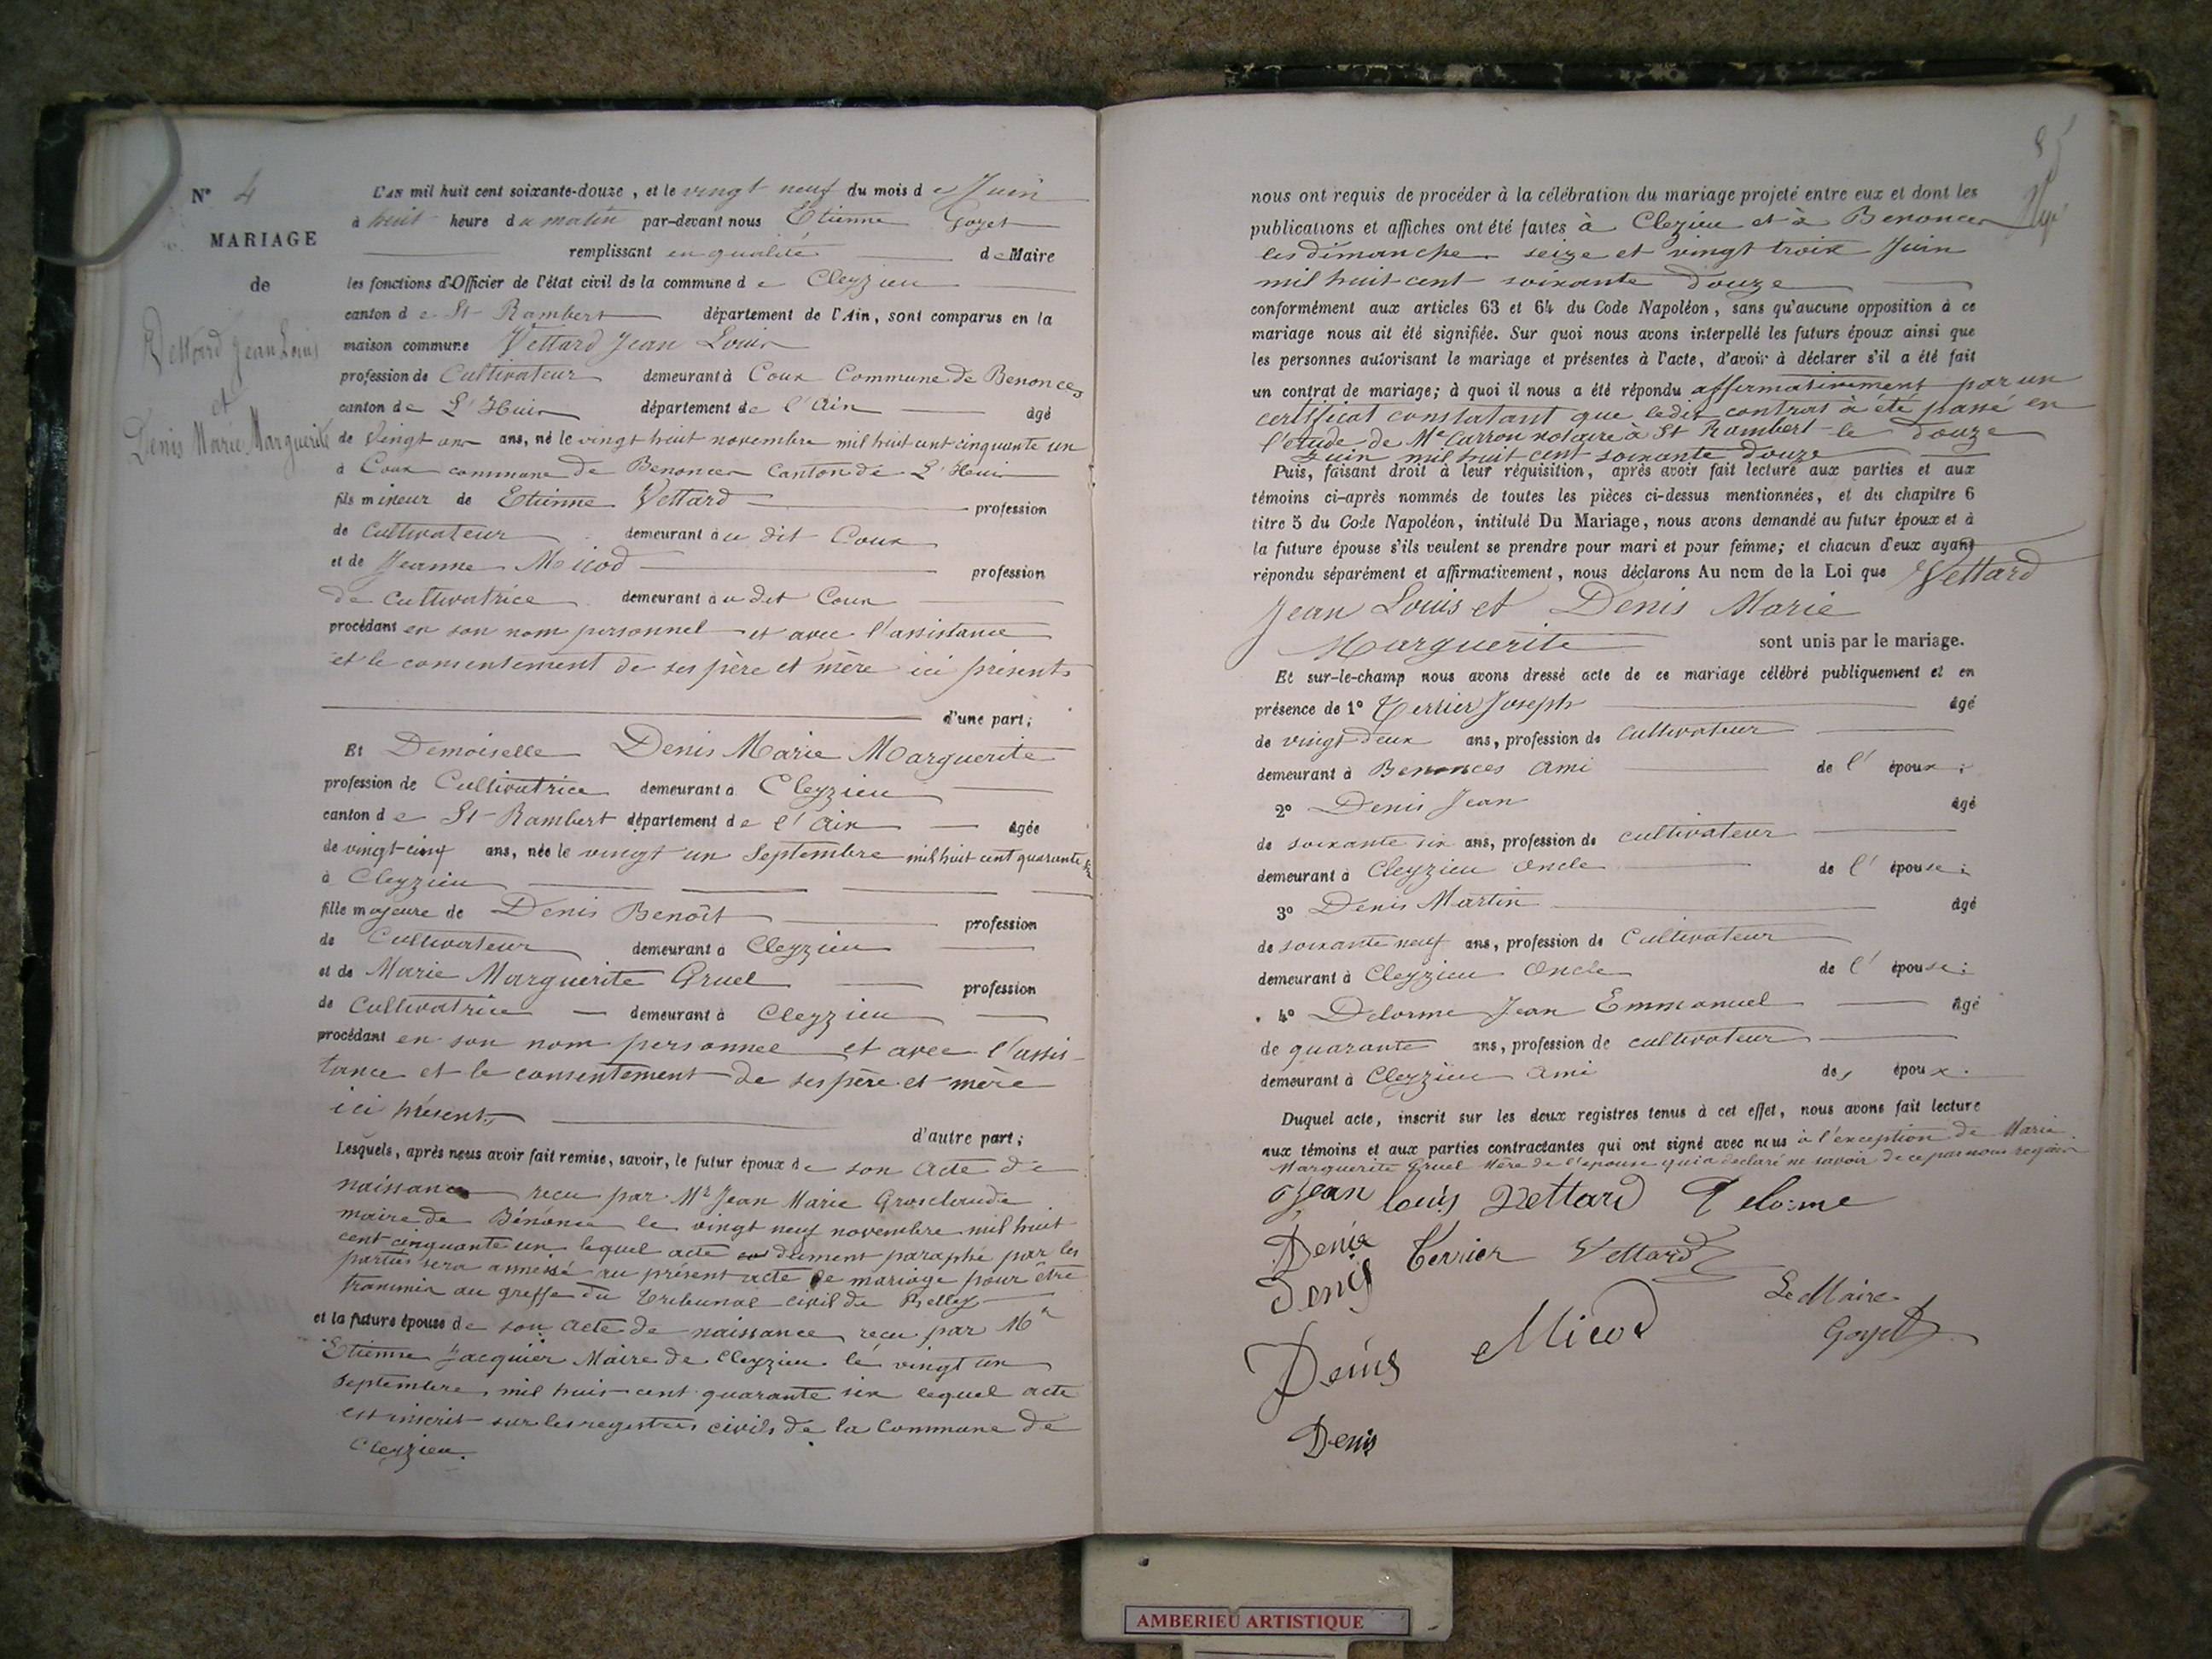 N° 4
MARIAGE
de
Vettard Jean Louis
et
Denis Marie Marguerite
L'AN mil huit cent soixante-douze, et le vingt neuf du mois de Juin
à huit heure du matin par-devant nous Etienne Goyet
remplissant en qualité de Maire
les fonctions d'Officier de l'état civil de la commune de Cleyzieu
canton de St Rambert département de l'Ain, sont comparus en la
maison commune Vettard Jean Louis
profession de Cultivateur demeurant à Coux Commune de Benonces
canton de L'Huis département de l'Ain âgé
de Vingt ans ans, né le vingt huit novembre mil huit cent cinquante un
à Coux commune de Benonces Canton de L'Huis
fils mineur de Etienne Vettard profession
de Cultivateur demeurant au dit Coux
et de Jeanne Micod profession
de Cultivatrice demeurant au dit Coux
procédant en son nom personnel et avec l'assistance
et le consentement de ses père et mère ici présents
d'une part;
Et Demoiselle Denis Marie Marguerite
profession de Cultivatrice demeurant à Cleyzieu
canton de St Rambert département de l'Ain âgée
de vingt-cinq ans, née le vingt un Septembre mil huit cent quarante six
à Cleyzieu
fille majeure de Denis Benoît profession
de Cultivateur demeurant à Cleyzieu
et de Marie Marguerite Gruel profession
de Cultivatrice demeurant à Cleyzieu
procédant en son nom personnel et avec l'assis-
tance et le consentement de ses père et mère
ici présents
d'autre part;
Lesquels, après nous avoir fait remise, savoir, le futur époux de son acte de
naissance recu par Mr Jean Marie Grosclaude
maire de Bénonce le vingt neuf novembre mil huit
cent cinquante un lequel acte dument paraphé par les
parties sera annexé au présent acte de mariage pour être
transmis au greffe du Tribunal civil de Belley
et la future épouse de son acte de naissance recu par Mr
Etienne Jacquier Maire de Cleyzieu le vingt un
Septembre mil huit cent quarante six lequel acte
est inscrit sur les registres civils de la Commune de
Cleyzieu.
nous ont requis de procéder à la célébration du mariage projeté entre eux et dont les
publications et affiches ont été faites à Clezieu et à Benonces
les dimanche seize et vingt trois Juin
mil huit cent soixante douze
conformément aux articles 63 et 64 du Code Napoléon, sans qu'aucune opposition à ce
mariage nous ait été signifiée. Sur quoi nous avons interpellé les futurs époux ainsi que
les personnes autorisant le mariage et présentes à l'acte, d'avoir à déclarer s'il a été fait
un contrat de mariage; à quoi il nous a été répondu affirmativement par un
certificat constatant que ledit contrat à été passé en
l'étude de Me Carron notaire à St Rambert le douze
Juin mil huit cent soixante douze
Puis, faisant droit à leur réquisition, après avoir fait lecture aux parties et aux
témoins ci-après nommés de toutes les pièces ci-dessus mentionnées, et du chapitre 6
titre 5 du Code Napoléon, intitulé Du Mariage, nous avons demandé au futur époux et à
la future épouse s'ils veulent se prendre pour mari et pour femme; et chacun d'eux ayant
répondu séparément et affirmativement, nous déclarons Au nom de la Loi que Vettard
Jean Louis et Denis Marie
Marguerite sont unis par le mariage.
Et sur-le-champ nous avons dressé acte de ce mariage célébré publiquement et en
présence de 1° Terrier Joseph âgé
de vingt deux ans, profession de Cultivateur
demeurant à Benonces Ami de l'époux;
2° Denis Jean âgé
de soixante six ans, profession de cultivateur
demeurant à Cleyzieu Oncle de l'épouse;
3° Denis Martin âgé
de soixante neuf ans, profession de Cultivateur
demeurant à Cleyzieu Oncle de l'épouse;
4° Delorme Jean Emmanuel âgé
de quarante ans, profession de cultivateur
demeurant à Cleyzieu Ami des époux.
Duquel acte, inscrit sur les deux registres tenus à cet effet, nous avons fait lecture
aux témoins et aux parties contractantes qui ont signé avec nous à l'exception de Marie
Marguerite Gruel Mère de l'épouse qui a declaré ne savoir de ce par nous requise
Jean louis Vettard Delorme
Denis Terrier Vettard
Denis
Le Maire
Denis Micod Goyet
Denis
AMBERIEU ARTISTIQUE